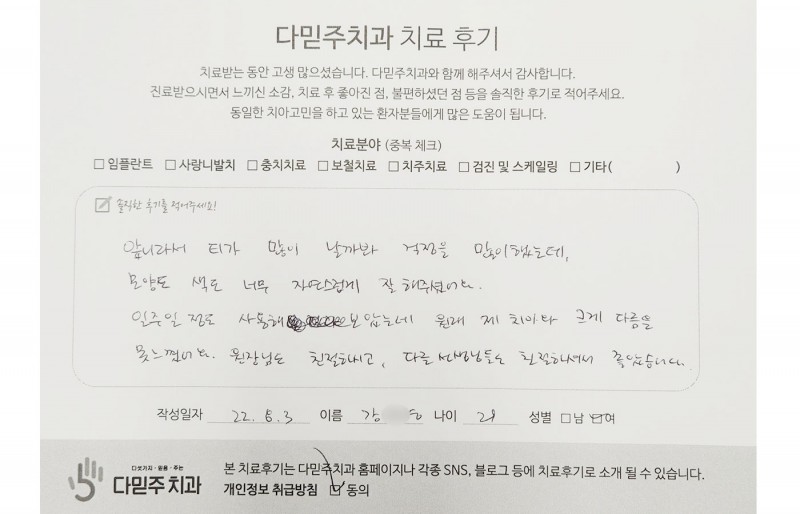 다믿주치과 치료 후기
치료받는 동안 고생 많으셨습니다. 다믿주치과와 함께 해주셔서 감사합니다.
진료받으시면서 느끼신 소감, 치료 후 좋아진 점, 불편하셨던 점 등을 솔직한 후기로 적어주세요.
동일한 치아고민을 하고 있는 환자분들에게 많은 도움이 됩니다.
치료분야 (중복 체크)
□ 임플란트 □ 사랑니발치 □ 충치치료 □ 보철치료 □ 치주치료 □ 검진 및 스케일링 □ 기타( )
솔직한 후기를 적어주세요!
앞니라서 티가 많이 날까봐 걱정을 많이했는데,
모양도 색도 너무 자연스럽게 잘 해주셨어요.
일주일 정도 사용해 보았는데 원래 제 치아와 크게 다름을
못느꼈어요. 원장님도 친절하시고, 다른 선생님들도 친절하셔서 좋았습니다.
작성일자 22. 6. 3 이름 강 나이 성별 □남 ☑여
다섯가지·믿음·주는
다믿주치과
본 치료후기는 다믿주치과 홈페이지나 각종 SNS, 블로그 등에 치료후기로 소개 될 수 있습니다.
개인정보 취급방침 ☑ 동의